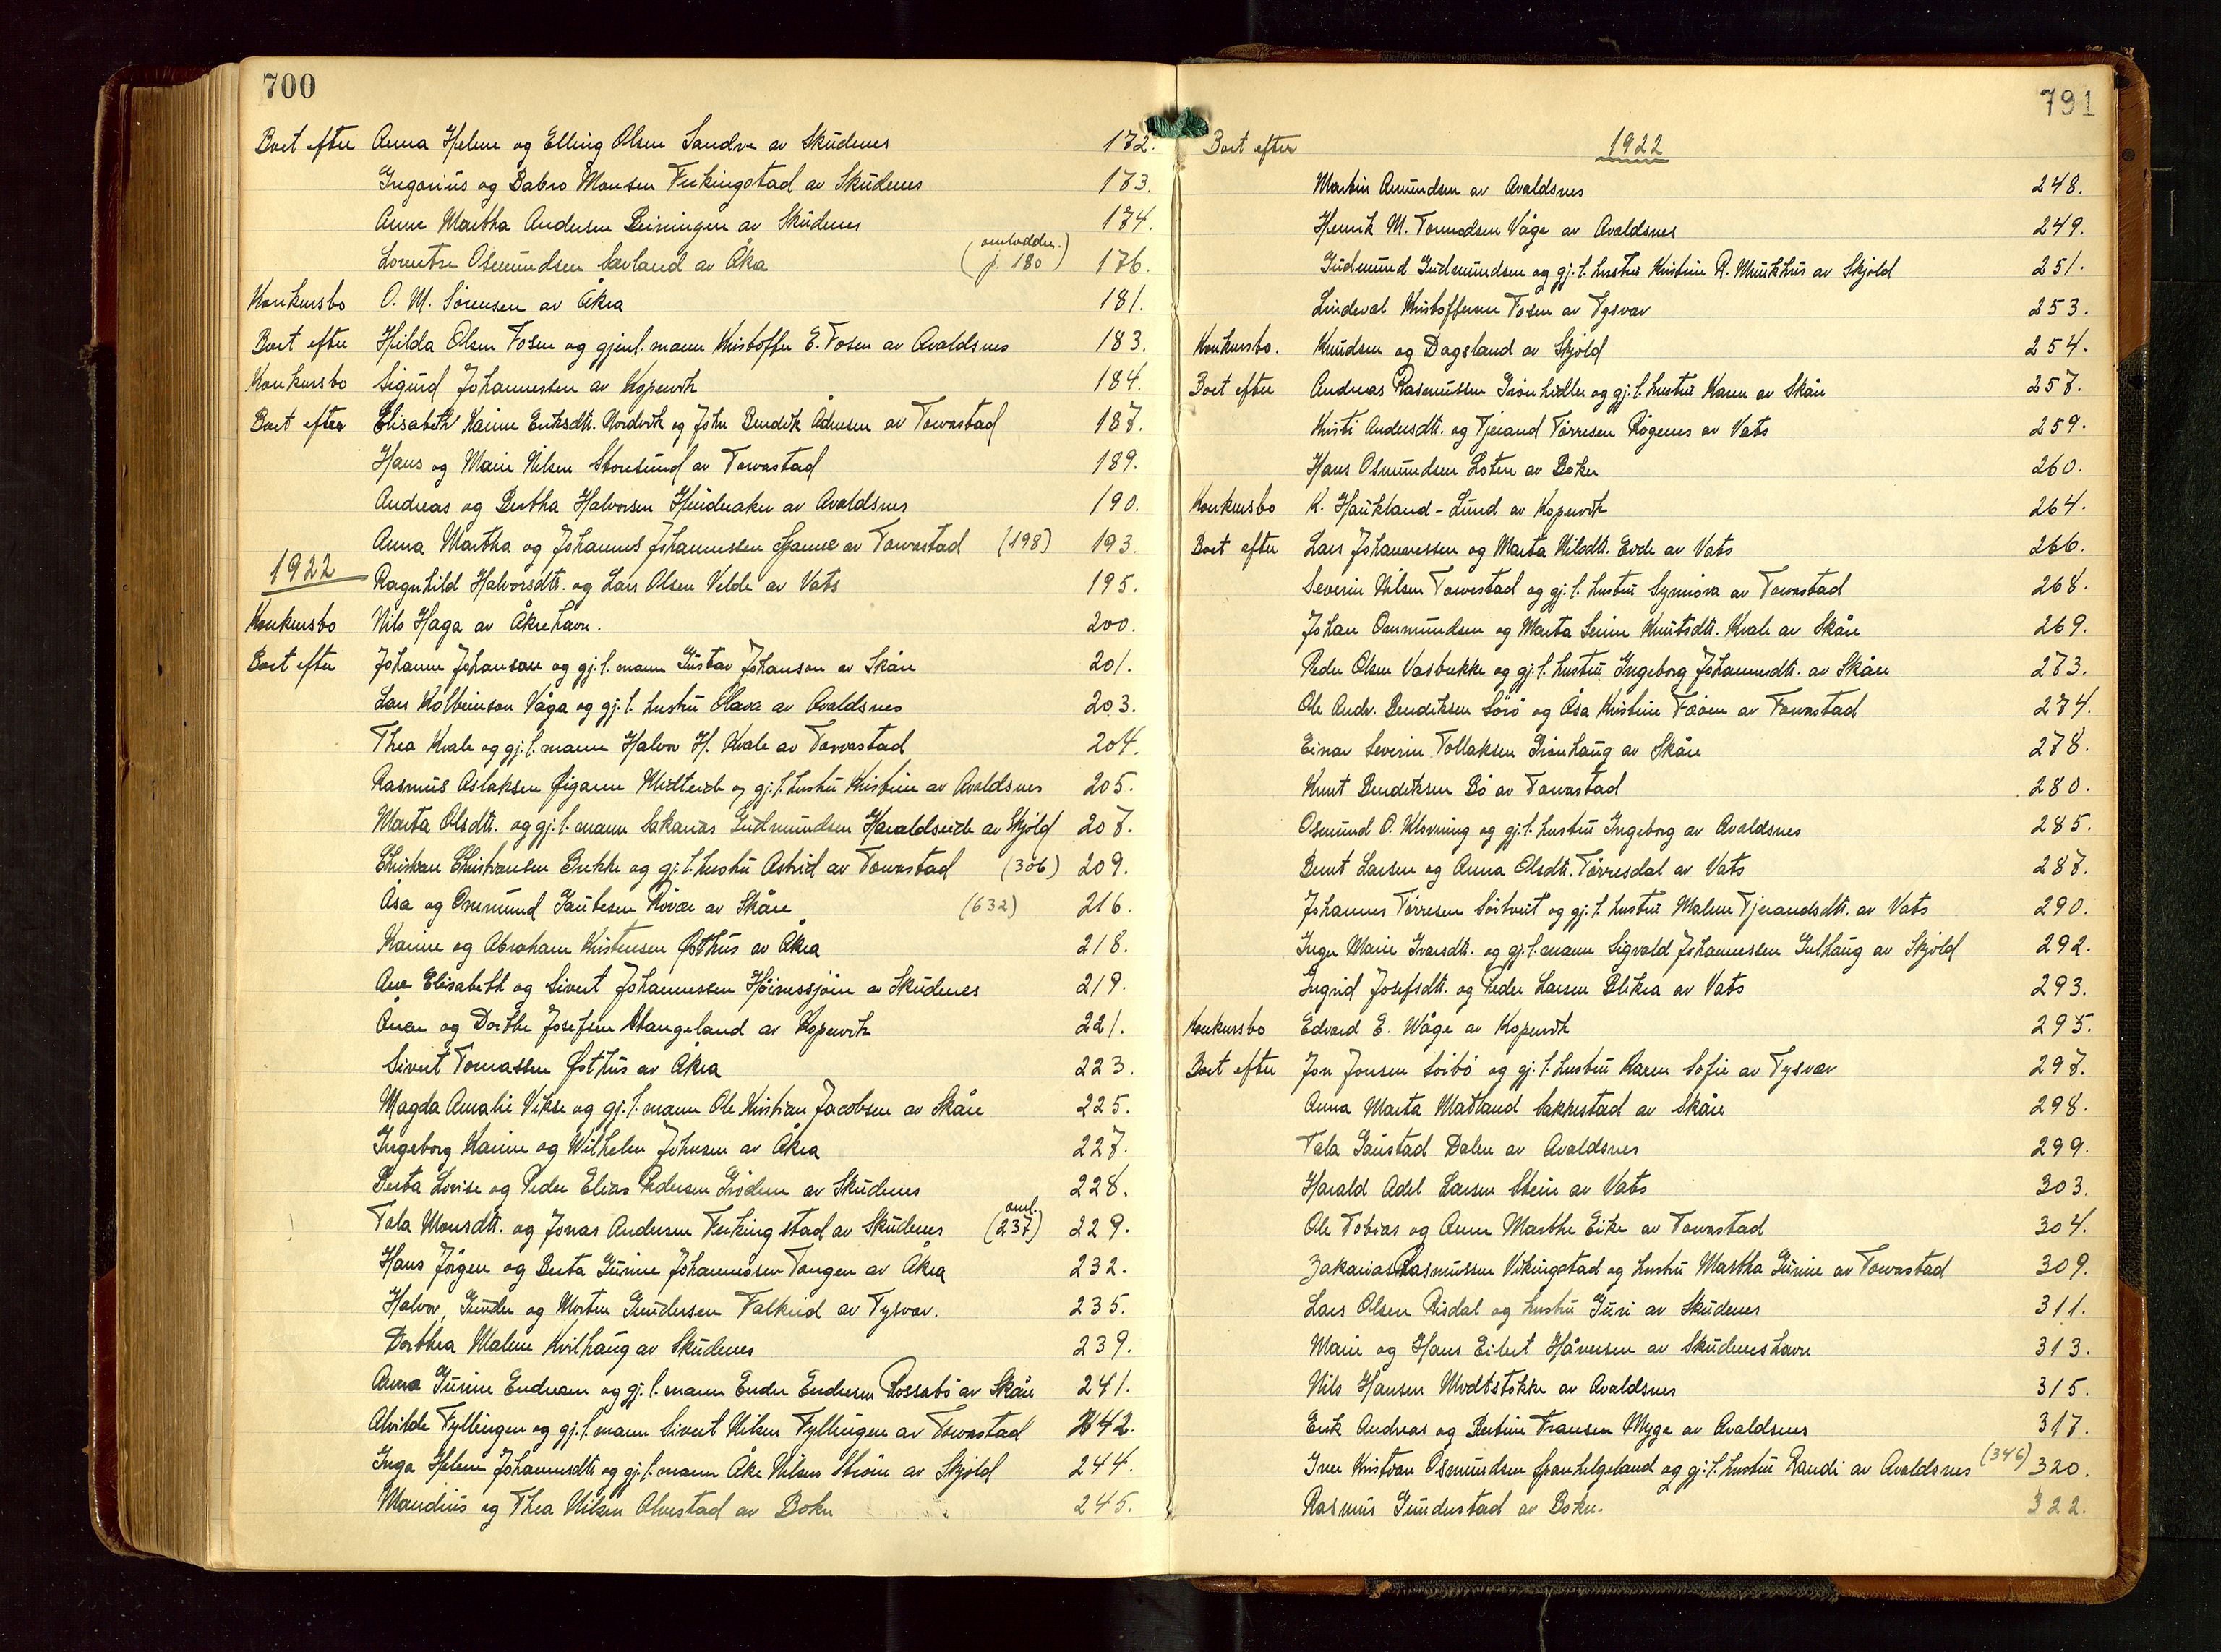 700
Boet efter Anna Helene og Elling Olsen Sandve av Skudenes 172.
Gregorius og Babro Monsen Ferkingstad av Skudenes 173.
Anne Martha Andersen Beiningen av Skudenes 174.
Lorentze Osmundsen Sævland av Åkra (omloddn. p. 180) 176.
Konkursbo O. M. Sørensen av Åkra 181.
Boet efter Hilda Olsen Fosen og gjenl. mann Kristoffer E. Fosen av Avaldsnes 183.
Konkursbo Sigurd Johannessen av Kopervik 184.
Boet efter Elisabeth Karine Eriksdtr. Nordvik og John Bendik Ådnesen av Torvastad 187.
Hans og Marie Nilsen Storesund av Torvastad 189.
Andreas og Bertha Halvorsen Hinderaker av Avaldsnes 190.
Anna Martha og Johannes Johannessen Spanne av Torvastad (198) 193.
1922
Ragnhild Halvorsdtr. og Lars Olsen Velde av Vats 195.
Konkursbo Nils Haga av Åkrehavn. 200.
Boet efter Johanne Johansen og gj.l. mann Gustav Johanson av Skåre 201.
Lars Kolbeinson Våga og gj.l. hustru Olava av Avaldsnes 203.
Thea Kvale og gj.l. mann Halvor H. Kvale av Torvastad 204.
Rasmus Aslaksen Øigaren Midteide og gj.l. hustru Kristine av Avaldsnes 205.
Marta Olsdtr. og gj.l. mann Sakarias Gudmundsen Haraldseide av Skjold 207.
Christian Christiansen Brekke og gj.l. hustru Astrid av Torvastad (306) 209.
Åsa og Ommund Gautesen Røvær av Skåre (632) 216.
Karine og Abraham Kristensen Østhus av Åkra 218.
Ane Elisabeth og Sivert Johannessen Høinessjøen av Skudenes 219.
og Dorthe Josefsen Stangeland av Kopervik 221.
Sivert Tomassen Østhus av Åkra 223.
Magda Amalie Vikse og gj.l. mann Ole Kristian Jacobsen av Skåre 225.
Ingeborg Karine og Wilhelm Johnsen av Åkra 227.
Berta Lovise og Peder Elias Pedersen Grødem av Skudenes 228.
Tala Monsdtr. og Jonas Andersen Ferkingstad av Skudenes (oml. 237) 229.
Hans Jørgen og Berta Gurine Johannessen Tangen av Åkra 232.
Halvor, Gunder og Morten Gundersen Falkeid av Tysvær. 235.
Dorthea Malene Kvilhaug av Skudenes 239.
Anna Gurine Endresen og gj.l. mann Ender Endresen Rossabø av Skåre 241.
Alvilde Fyllingen og gj.l. mann Sivert Nilsen Fyllingen av Torvastad 242.
Inga Helene Johannesdtr. og gj.l. mann Åke Nilsen Strøm av Skjold 244.
Mandius og Thea Nilsen Alvestad av Bokn 245.
791
Boet efter 1922
Martin Amundsen av Avaldsnes 248.
Henrik M. Tormodsen Våge av Avaldsnes 249.
Gudmund Gudmundsen og gj.l. hustru Kristine R. Munkhus av Skjold 251.
Lindeval Kristoffersen Fosen av Tysvær 253.
Konkursbo. Knudsen og Dagsland av Skjold 254.
Boet efter Andreas Rasmussen Grønhidler og gj.l. hustru Karen av Skåre 257.
Kristi Andersdtr. og Tjerand Tørresen Røgenes av Vats 259.
Hans Osmundsen Loten av Bokn 260.
Konkursbo K. Haukland-Lund av Kopervik 264.
Boet efter Lars Johannessen og Marta Nilsdtr. Eide av Vats 266.
Severin Nilsen Torvestad og gj.l. hustru Synnøva av Torvastad 268.
Johan Ommundsen og Marta Serine Knutsdtr. Kvale av Skåre 269.
Peder Olsen Vasbrekke og gj.l. hustru Ingeborg Johannesdtr. av Skåre 273.
Ole Andr. Bendiksen Sørø og Åsa Kristine Feøen av Torvastad 274.
Einar Severin Tollaksen Grønhaug av Skåre 278.
Knut Bendiksen Bø av Torvastad 280.
Osmund O. Kloning og gj.l. hustru Ingeborg av Avaldsnes 285.
Bernt Larsen og Anna Olsdtr. Tørresdal av Vats 287.
Johannes Tørresen Søitveit og gj.l. hustru Malene Tjerandsdtr. av Vats 290.
Inger Marie Ivarsdtr. og gj.l. mann Sigvald Johannessen Gulhaug av Skjold 292.
Ingrid Josefsdtr. og Peder Larsen Blikra av Vats 293.
Konkursbo Edvard E. Wåge av Kopervik 295.
Boet efter Jon Jonsen Sørbø og gj.l. hustru Karen Sofie av Tysvær 297.
Anna Marta Matland Sakkestad av Skåre 298.
Tala Gaustad Dalen av Avaldsnes 299.
Harald Adel Larsen Stein av Vats 303.
Ole Tobias og Anne Marthe Eike av Torvastad 304.
Zakarias Rasmussen Vikingstad og hustru Martha Gurine av Torvastad 309.
Lars Olsen Risdal og hustru Guri av Skudenes 311.
Marie og Hans Eilert Håversen av Skudeneshavn 313.
Nils Hansen Midtstokke av Avaldsnes 315.
Erik Andreas og Bertine Fransen Myge av Avaldsnes 317.
Iver Kristian Osmundsen Spanhelgeland og gj.l. hustru Randi av Avaldsnes (346) 320.
Rasmus Gunderstad av Bokn. 322.